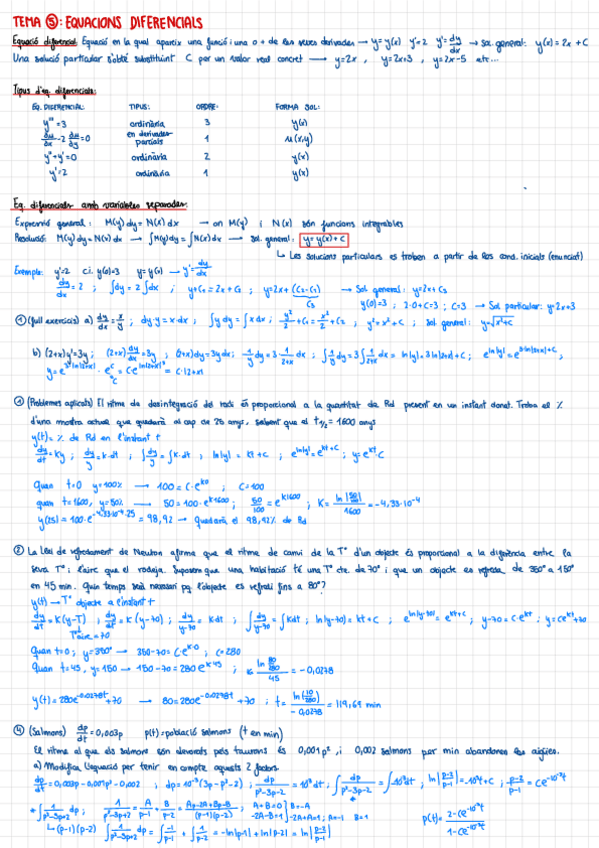 TEMA ⑤: EQUACIONS DIFERENCIALS
Equació diferencial: Equació en la qual apareix una funció i una o + de les seves derivades → y=y(x) y'=2 y'=dy/dx → Sol. general: y(x)=2x+C
Una solució particular s'obté substituint C per un valor real concret → y=2x , y=2x+3 , y=2x-5 etc...
Tipus d'eq. diferencials:
EQ. DIFERENCIAL: TIPUS: ORDRE: FORMA SOL:
y'''=3 ordinària 3 y(x)
∂u/∂x -2 ∂u/∂y =0 en derivades parcials 1 u(x,y)
y''+y'=0 ordinària 2 y(x)
y'=2 ordinària 1 y(x)
Eq. diferencials amb variables separades:
Expressió general: M(y)dy=N(x)dx → on M(y) i N(x) són funcions integrables
Resolució: M(y)dy=N(x)dx → ∫M(y)dy=∫N(x)dx → Sol. general: y=y(x)+C
↳ Les solucions particulars es troben a partir de les cond. inicials (enunciat)
Exemple: y'=2 c.i. y(0)=3 y=y(x) → y'=dy/dx
dy/dx=2 ; ∫dy=2∫dx ; y+C₁=2x+C₂ ; y=2x+(C₂-C₁) → Sol general: y=2x+C₃
C₃ y(0)=3 ; 2·0+C=3 ; C=3 → Sol particular: y=2x+3
① (full exercicis) a) dy/dx=x/y ; dy·y=x·dx ; ∫y dy=∫x dx ; y²/2+C₁=x²/2+C₂ ; y²=x²+C ; Sol general: y=√x²+C
b) (2+x)y'=3y ; (2+x)dy/dx=3y ; (2+x)dy=3y dx ; 1/y dy=3·1/2+x dx ; ∫1/y dy=3∫1/2+x dx = ln|y|=3ln|2+x|+C ; e^ln|y|=e^3ln|2+x|+C ;
y=e^3ln|2+x| · e^C = C·e^ln|2+x|³ = C·|2+x|³
① (Problemes aplicats) El ritme de desintegració del radi és proporcional a la quantitat de Rd present en un instant donat. Troba el %
d'una mostra actual que quedarà al cap de 25 anys, sabent que el t1/2=1600 anys
y(t)=% de Rd en l'instant t
dy/dt=ky ; dy/y=k·dt ; ∫dy/y=∫k·dt ; ln|y|=kt+C ; e^ln|y|=e^kt+C ; y=e^kt·C
Quan t=0 y=100% → 100=C·e^k0 ; C=100
quan t=1600, y=50% → 50=100·e^k1600 ; 50/100=e^k1600 ; K=ln|50/100|/1600=-4,33·10^-4
y(25)=100·e^-4,33·10^-4·25=98,92 → Quedarà el 98,92% de Rd
② La llei de refredament de Newton afirma que el ritme de canvi de la Tª d'un objecte és proporcional a la diferència entre la
seva Tª i l'aire que el rodeja. Suposem que una habitació té una Tª cte. de 70° i que un objecte es refreda de 350° a 150°
en 45 min. Quin temps serà necessari pq l'objecte es refredi fins a 80°?
y(t) → Tª objecte a l'instant t
dy/dt=K(y-T) ; dy/dt=K(y-70) ; dy/y-70=Kdt ; ∫dy/y-70=∫Kdt ; ln|y-70|=kt+C ; e^ln|y-70|=e^kt+C ; y-70=C·e^kt ; y=Ce^kt+70
Tª aire=70
Quan t=0 ; y=350° → 350-70=C·e^k·0 ; C=280
Quan t=45, y=150 → 150-70=280e^k45 ; K=ln|80/280|/45=-0,0278
y(t)=280e^-0,0278t+70 → 80=280e^-0,0278t+70 ; t=ln|10/280|/-0,0278=119,69 min
④ (Salmons) dp/dt=0,003p p(t)=població salmons (t en min)
El ritme al que els salmons són devorats pels taurons és 0,001p², i 0,002 salmons per min abandonen les aigües.
a) Modifica l'equació per tenir en compte aquests 2 factors
dp/dt=0,003p-0,001p²-0,002 ; dp=10^-3(3p-p²-2) ; dp/p²-3p-2=10^-3dt ; ∫dp/p²-3p-2=∫10^-3dt ; ln|p-2/p-1|=-10^-3t+C ; p-2/p-1=Ce^-10^-3t
* ∫1/p²-3p+2 dp ; 1/p²-3p+2=A/p-1+B/p-2=Ap-2A+Bp-B/(p-1)(p-2) ; A+B=0 } B=-A
-2A-B=1 } -2A+A=1 ; A=-1 B=1
↳ (p-1)(p-2) ∫1/p²-3p+2 dp=∫-1/p-1+∫1/p-2=-ln|p-1|+ln|p-2|=ln|p-2/p-1|
p(t)=2-Ce^-10^-3t/1-Ce^-10^-3t